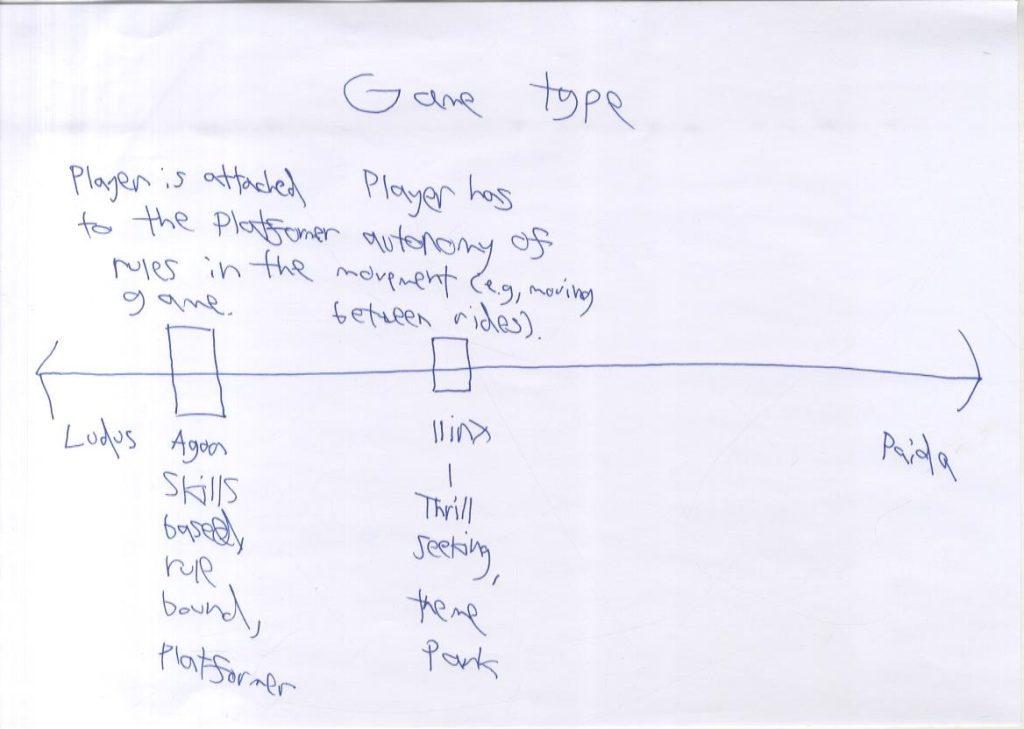 Game type
Player is attached
to the Platfomer
rules in the
game.
Player has
autonomy of
movement (e.g, moving
between rides).
Ludus
Agon
Skills
based,
rule
bound,
Platformer
Ilinx
Thrill
seeking,
theme
Park
Paida